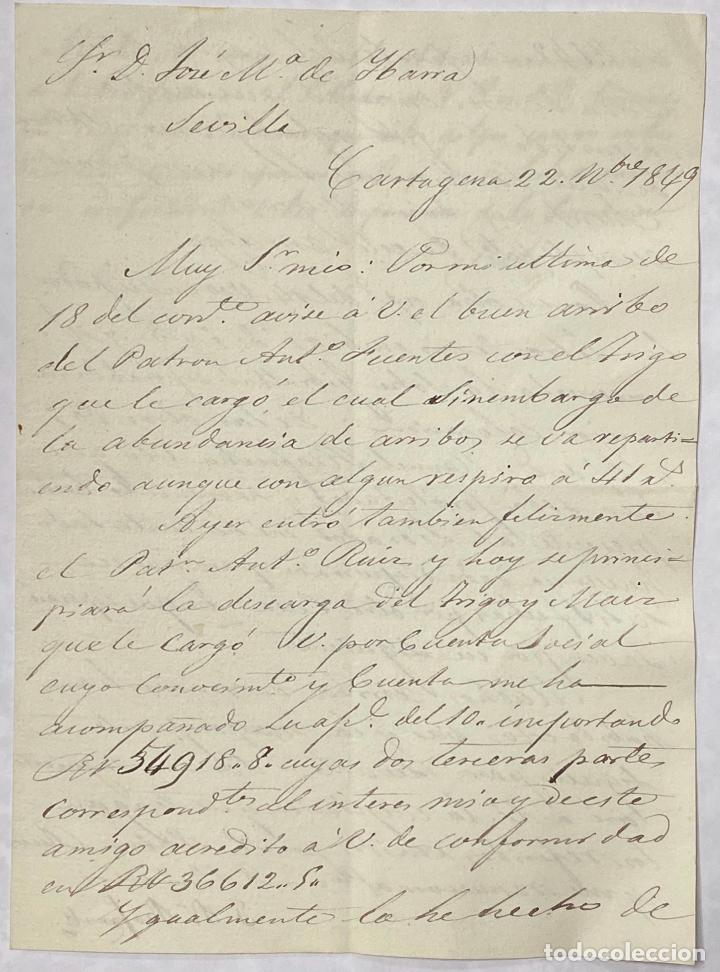 Sr. D. José Mª de Ybarra
Sevilla
Cartagena 22. Nbre. 1849
Muy Sr. mio: Por mi ultima de
18 del corrte. avise á V. el buen arribo
del Patron Anto. Fuentes con el Trigo
que le cargó, el cual sinembargo de
la abundancia de arribos, se va reparti=
endo aunque con algun respiro á 41 rs.
Ayer entró tambien felizmente
el Patn. Anto. Ruiz y hoy se princi=
piará la descarga del Trigo y Maiz
que le cargó V. por Cuenta Social
cuyo Conocimto. y Cuenta me ha
acompañado su apda. del 10. importando
RV 54918..8. cuyas dos terceras partes
correspondtes. al interes mio y de este
amigo acredito á V. de conformidad
en RV 36612..5.
Ygualmente lo he hecho de
todocoleccion.net